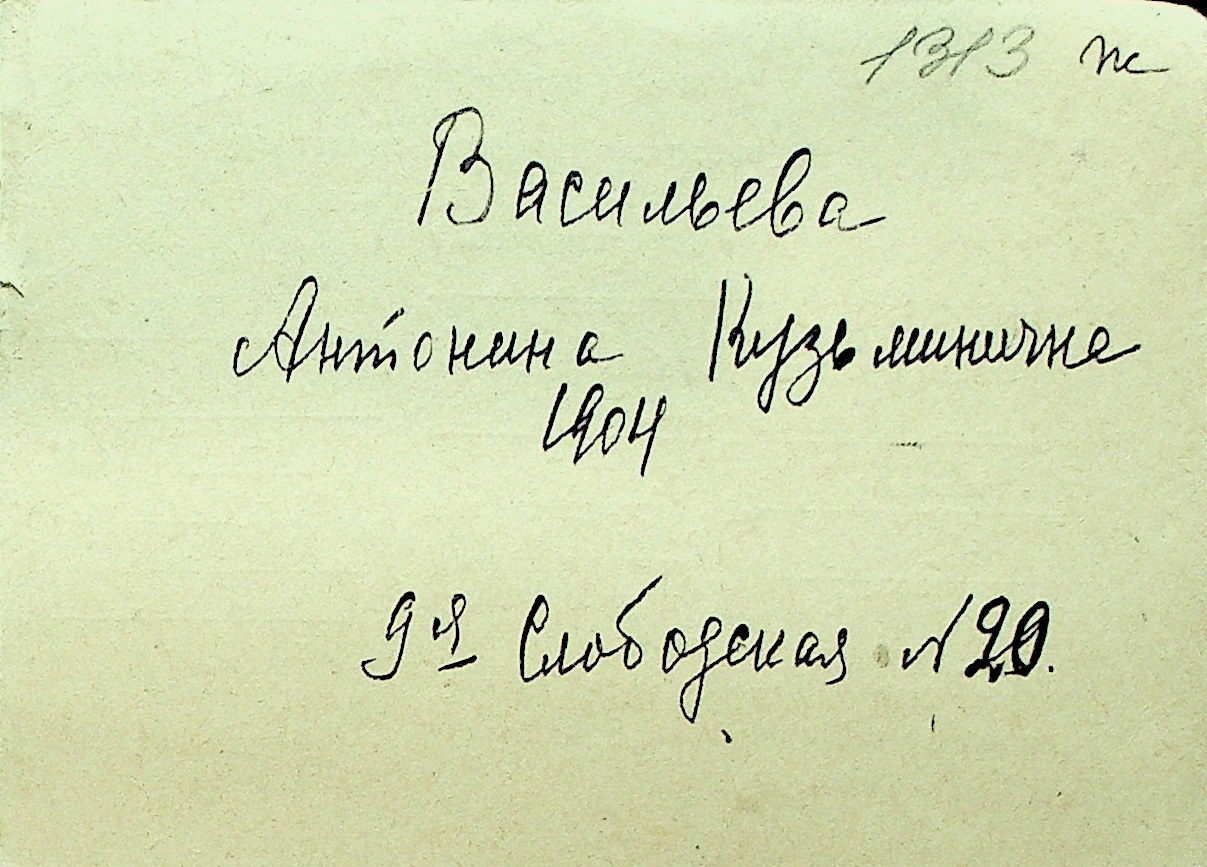 1313 ж
Васильева
Антонина Кузьминична
1904
9я Слободская N 20.